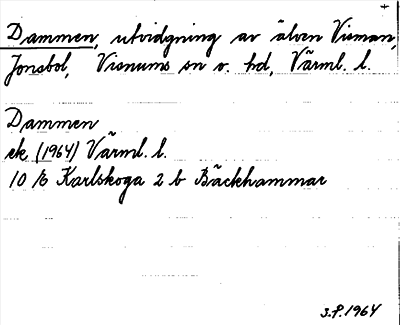 Dammen, utvidgning av älven Visman,
Jonsbol, Visnums sn o. hd, Värml. l.
Dammen
ek. (1964) Värml. l.
10 E Karlskoga 2 b Bäckhammar
S.P. 1964